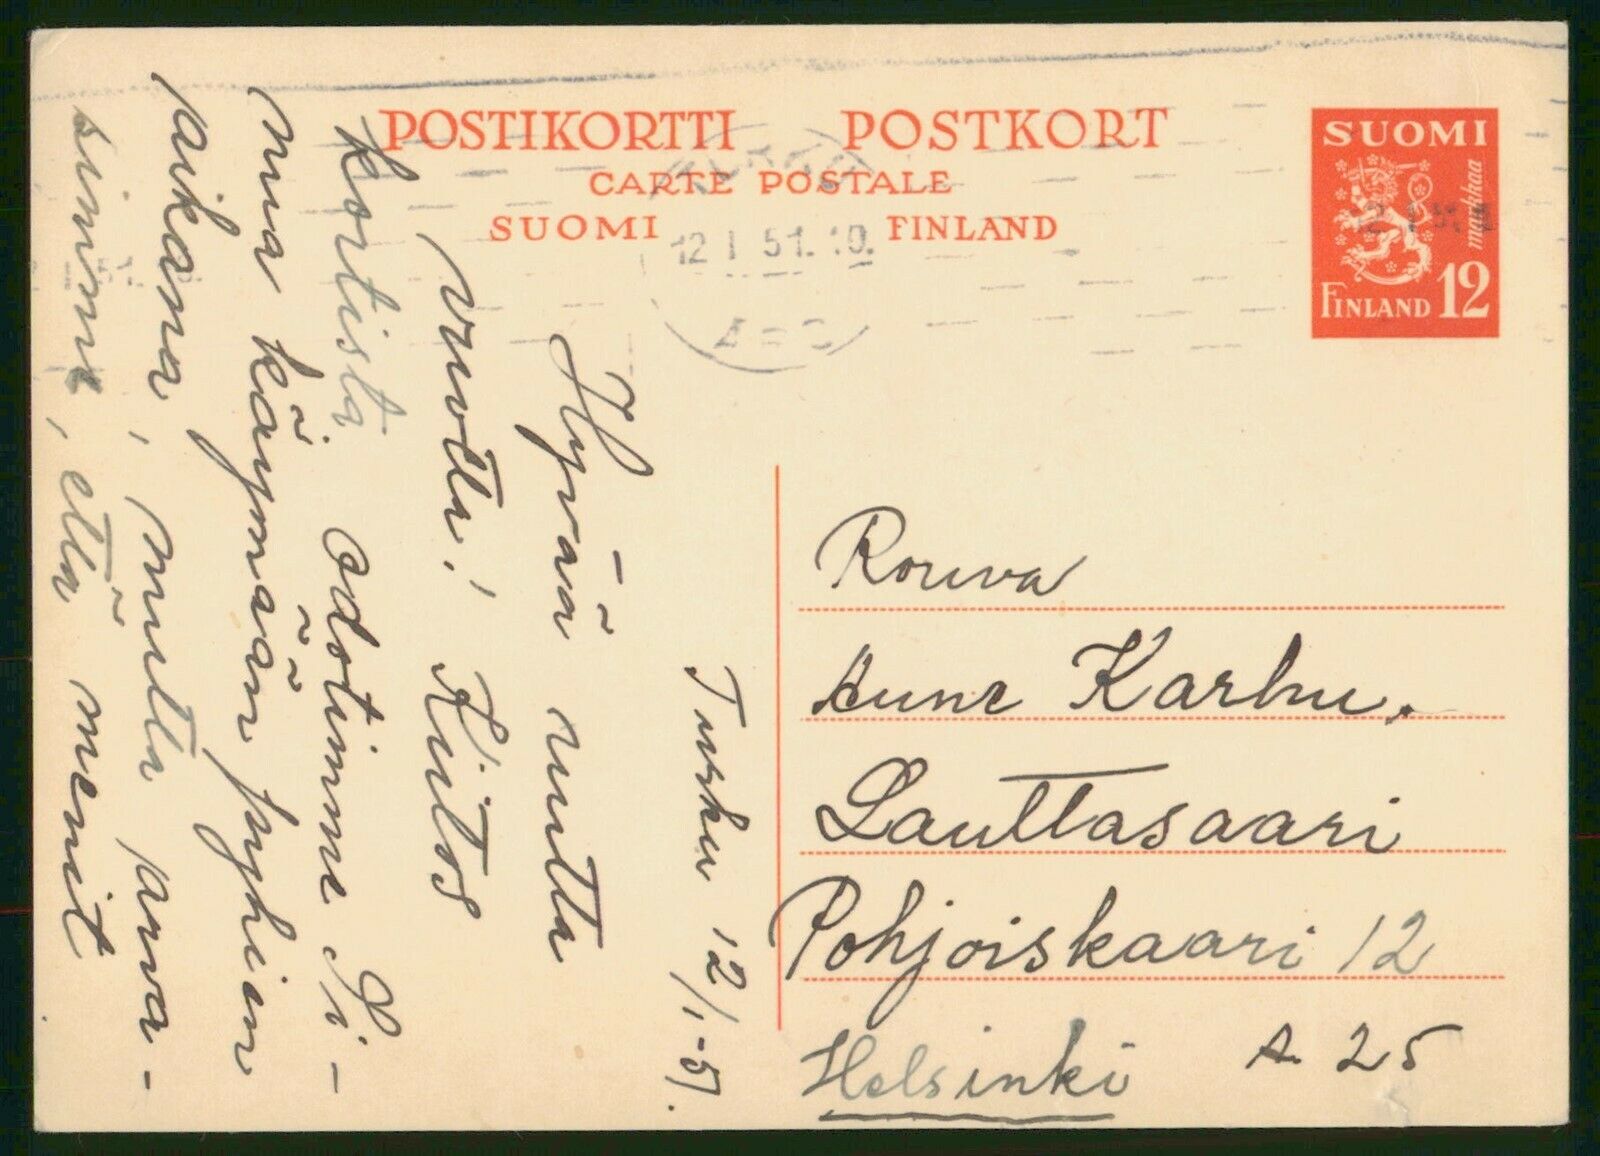 POSTIKORTTI POSTKORT
CARTE POSTALE
SUOMI FINLAND
12 I 51.10.
SUOMI
markkaa
FINLAND 12
Turku 12/1-51.
Hyvää uutta
vuotta! Kiitos
kortista odotimme Si-
nua käymään pyhien
aikana, mutta arva-
simme, että menit
Rouva
Aune Karhu.
Lauttasaari
Pohjoiskaari 12
A. 25
Helsinki